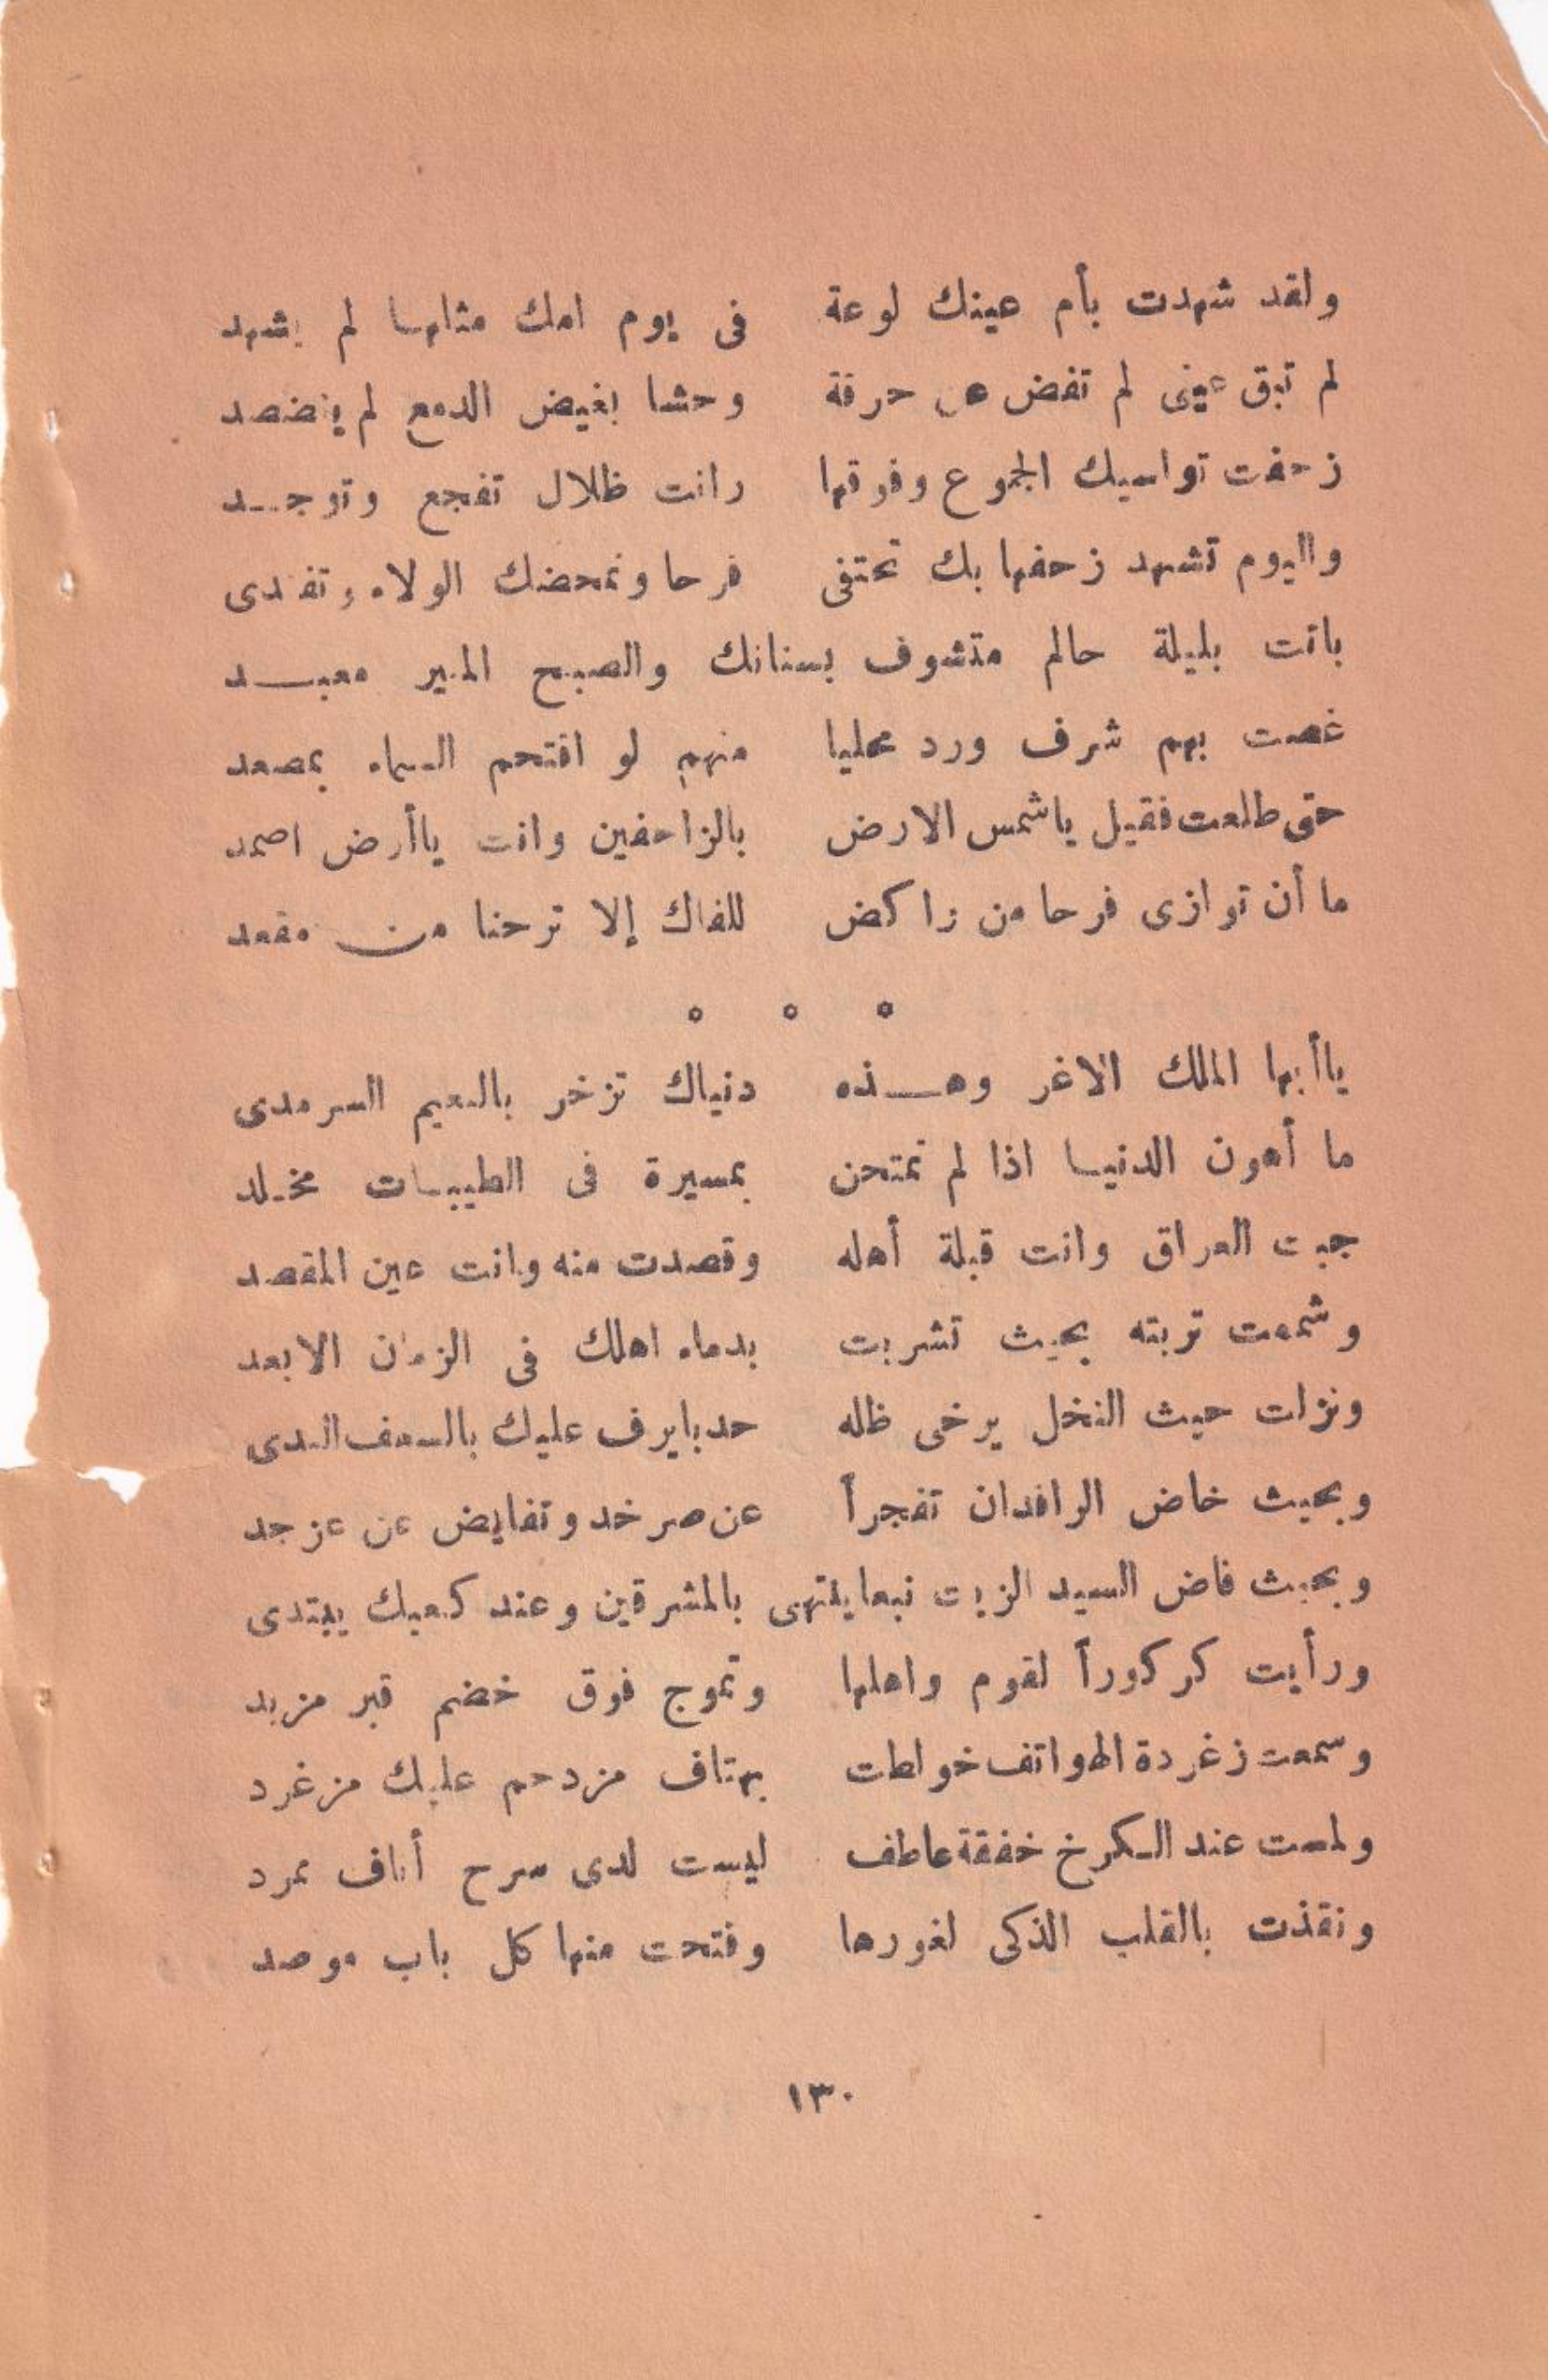 ولقد شهدت بأم عينك لوعة فى يوم امك مثلهـا لم يشهد
لم تبق عينى لم تفض من حرقة وحشا بغيض الدمع لم يضصد
زحفت تواسيك الجموع وفوقها رانت ظلال تفجع وتوجـد
واليوم تشهد زحفها بك تحتفى فرحا وتمحضك الولاء وتفتدى
باتت بليلة حالم متشوف بسنانك والصبح المنير معبـــد
غصت بهم شرف ورد محليا منهم لو اقتحم السماء بمصعد
حتى طلعت فقيل ياشمس الارض بالزاحفين وانت ياأرض اصمد
ما أن توازى فرحا من راكض للفلك إلا ترحنا من مقعد
ياأيها الملك الاغر وهـــذه دنياك تزخر بالنعيم السرمدى
ما أهون الدنيـا اذا لم تمتحن بمسيرة فى الطيبـات مخـلد
جبت العراق وانت قبلة أهله وقصدت منه وانت عين المقصد
وشممت تربته بحيث تشربت بدماء اهلك فى الزمان الابعد
ونزلت حيث النخل يرخى ظله حدبا يرف عليك بالسعف الندى
وبحيث خاض الرافدان تفجراً عن صرخد وتفايض عن عزجد
وبحيث فاض السيد الزيت نبعا ينتهى بالمشرقين وعند كعبك يبتدى
ورأيت كركوراً لقوم واهلها وتموج فوق خضم قبر مزبد
وسمعت زغردة الهواتف خوالطت بهتاف مزدحم عليك مزغرد
ولمست عند الـكرخ خفقة عاطف ليست لدى صرح أناف ممرد
ونقذت بالقلب الذكى لغورها وفتحت منها كل باب موصد
١٣٠